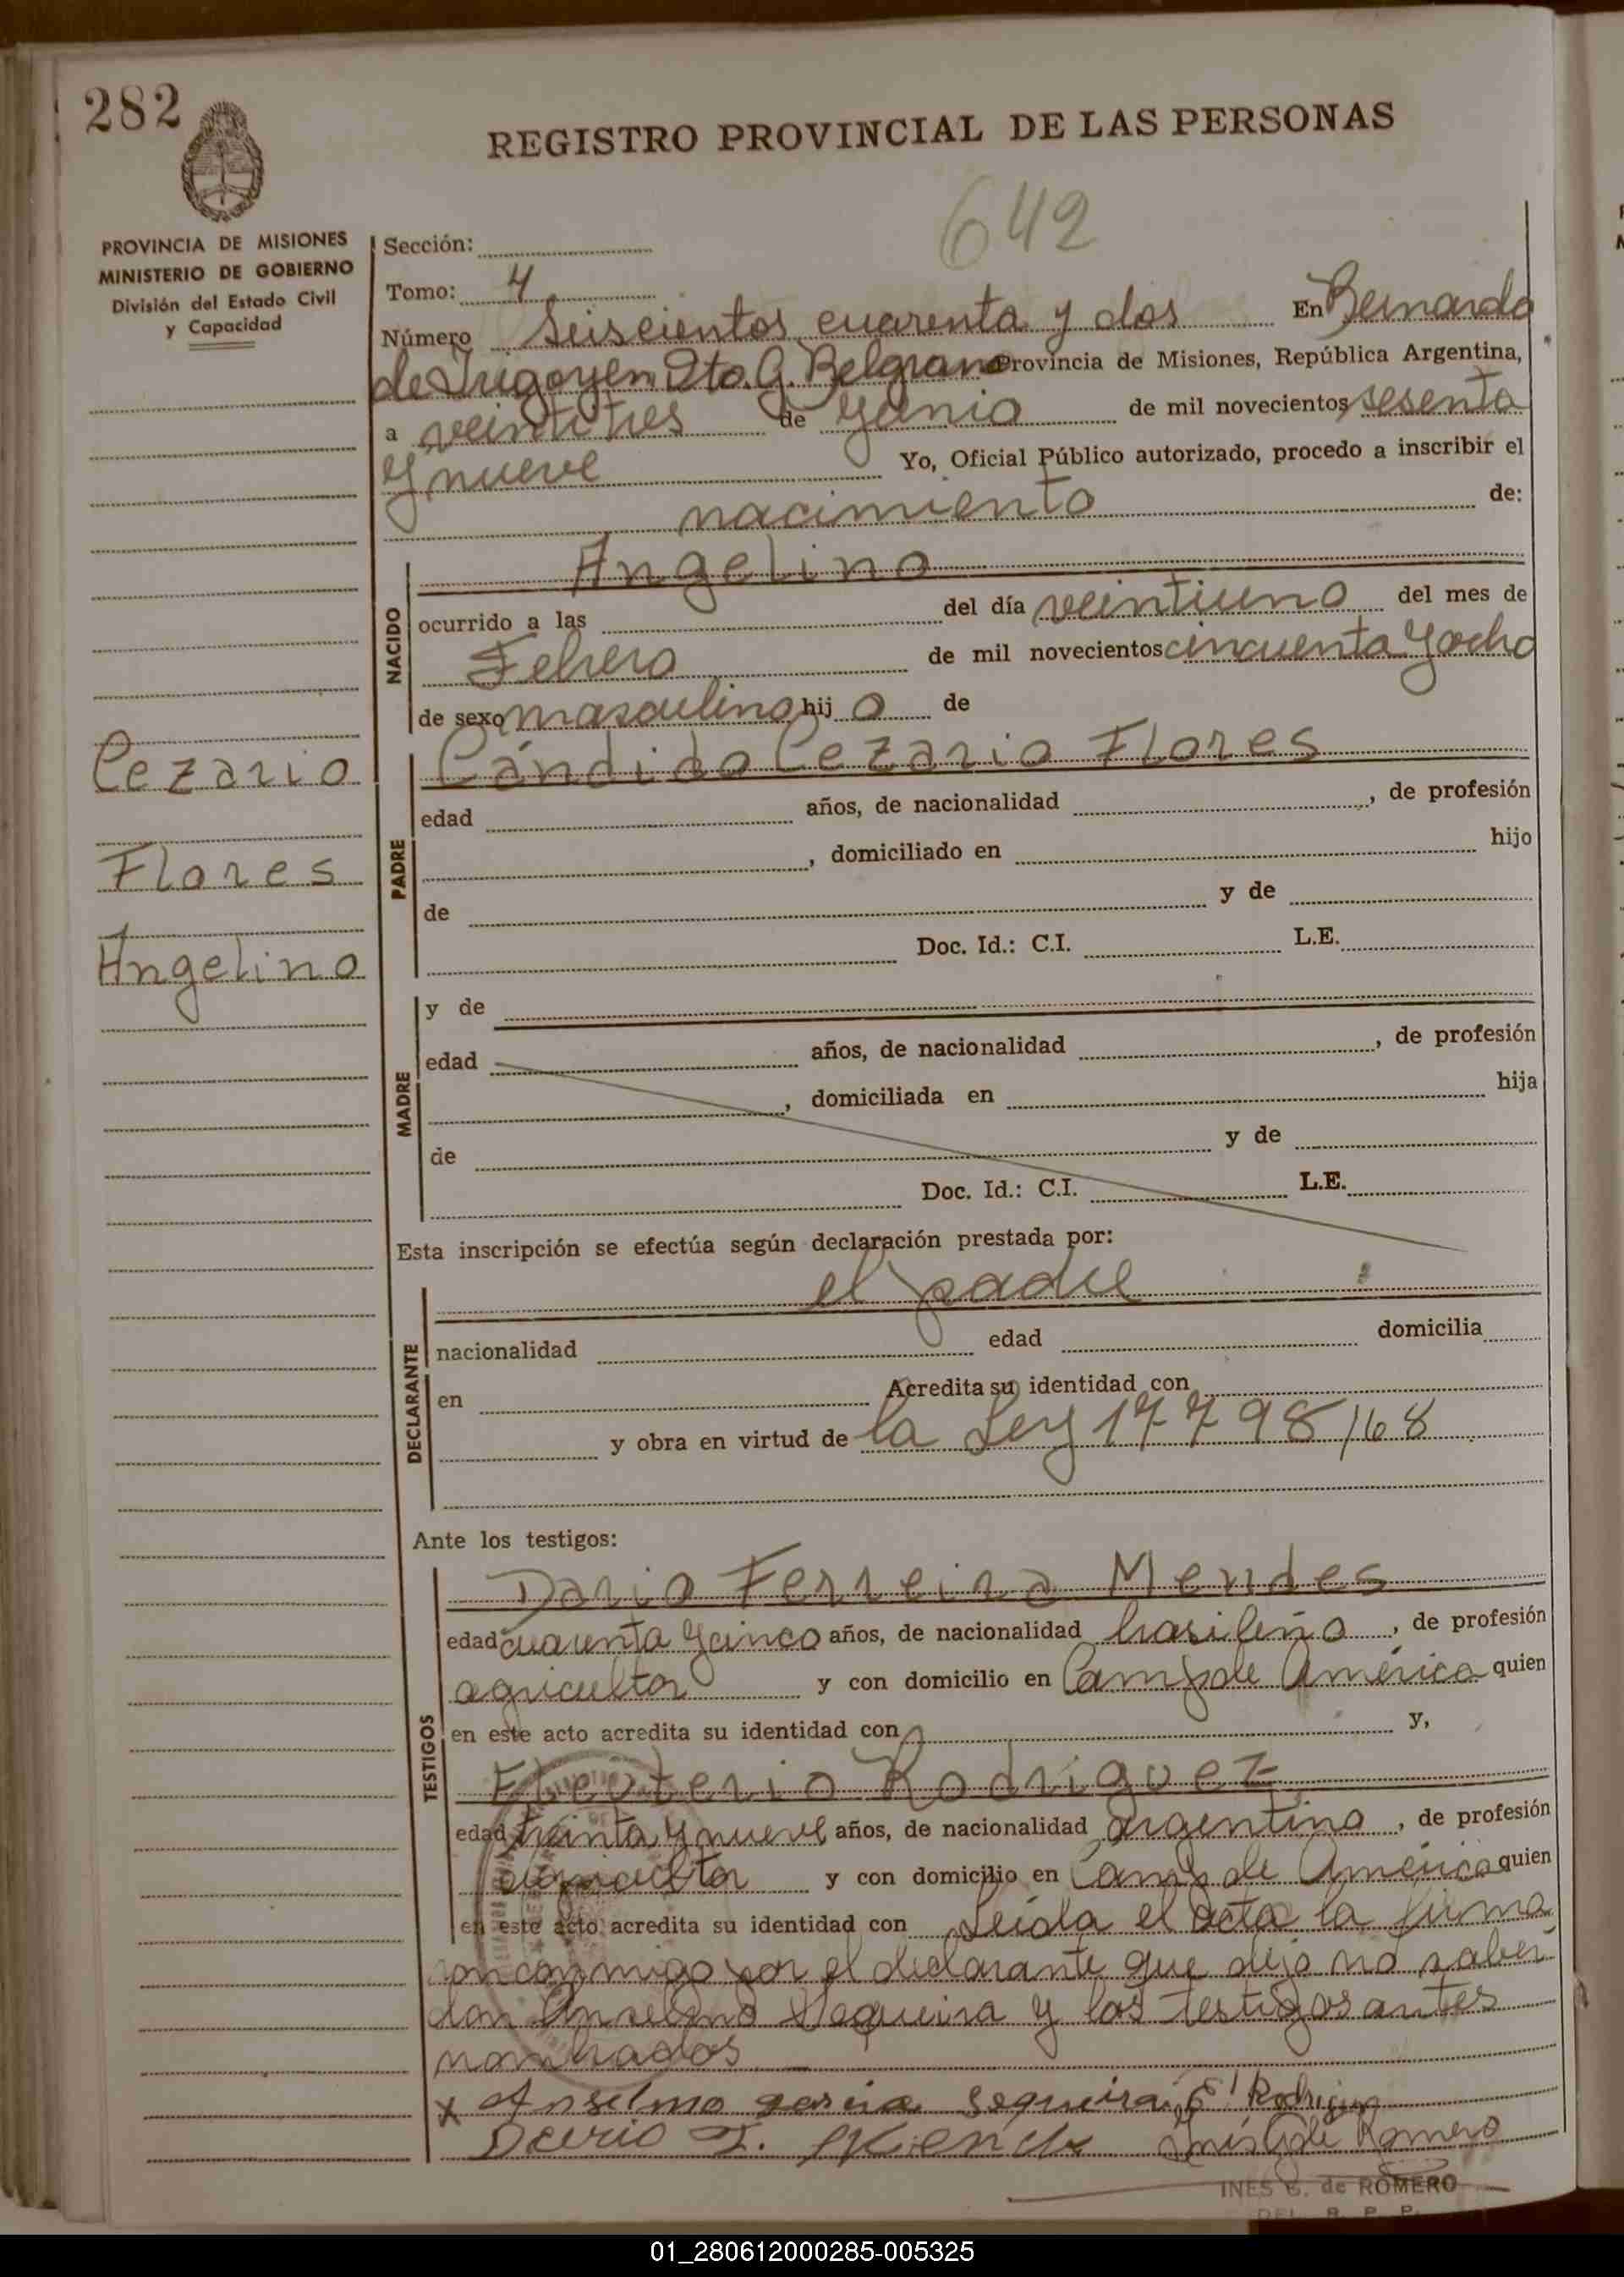 282
REGISTRO PROVINCIAL DE LAS PERSONAS
642
PROVINCIA DE MISIONES
MINISTERIO DE GOBIERNO
División del Estado Civil
y Capacidad
Sección:
Tomo: 4
Número Seiscientos cuarenta y dos En Bernardo
de Irigoyen Dto. G. Belgrano Provincia de Misiones, República Argentina,
a veintitres de Junio de mil novecientos sesenta
y nueve Yo, Oficial Público autorizado, procedo a inscribir el
nacimiento de:
NACIDO
Angelino
ocurrido a las del día veintiuno del mes de
Febrero de mil novecientos cincuenta y ocho
de sexo masculino hij o de
Cezario
Flores
Angelino
PADRE
Cándido Cezario Flores
edad años, de nacionalidad , de profesión
, domiciliado en hijo
de y de
Doc. Id.: C.I. L.E.
MADRE
y de
edad años, de nacionalidad , de profesión
, domiciliada en hija
de y de
Doc. Id.: C.I. L.E.
Esta inscripción se efectúa según declaración prestada por:
DECLARANTE
el padre
nacionalidad edad domicilia
en Acredita su identidad con
y obra en virtud de la Ley 17798/68
Ante los testigos:
TESTIGOS
Dario Ferreira Mendes
edad cuarenta y cinco años, de nacionalidad brasileño , de profesión
agricultor y con domicilio en Camp de América quien
en este acto acredita su identidad con y,
Eleuterio Rodriguez
edad treinta y nueve años, de nacionalidad argentino , de profesión
agricultor y con domicilio en Camp de América quien
en este acto acredita su identidad con Leída el acta la firma
con conmigo por el declarante que dijo no saber
don Anselmo Sequeira y los testigos antes
nombrados
x Anselmo garcia Sequeira E Rodriguez
Dario F. Inés G de Romero
INES G. de ROMERO
DEL. R. P. P.
01_280612000285-005325